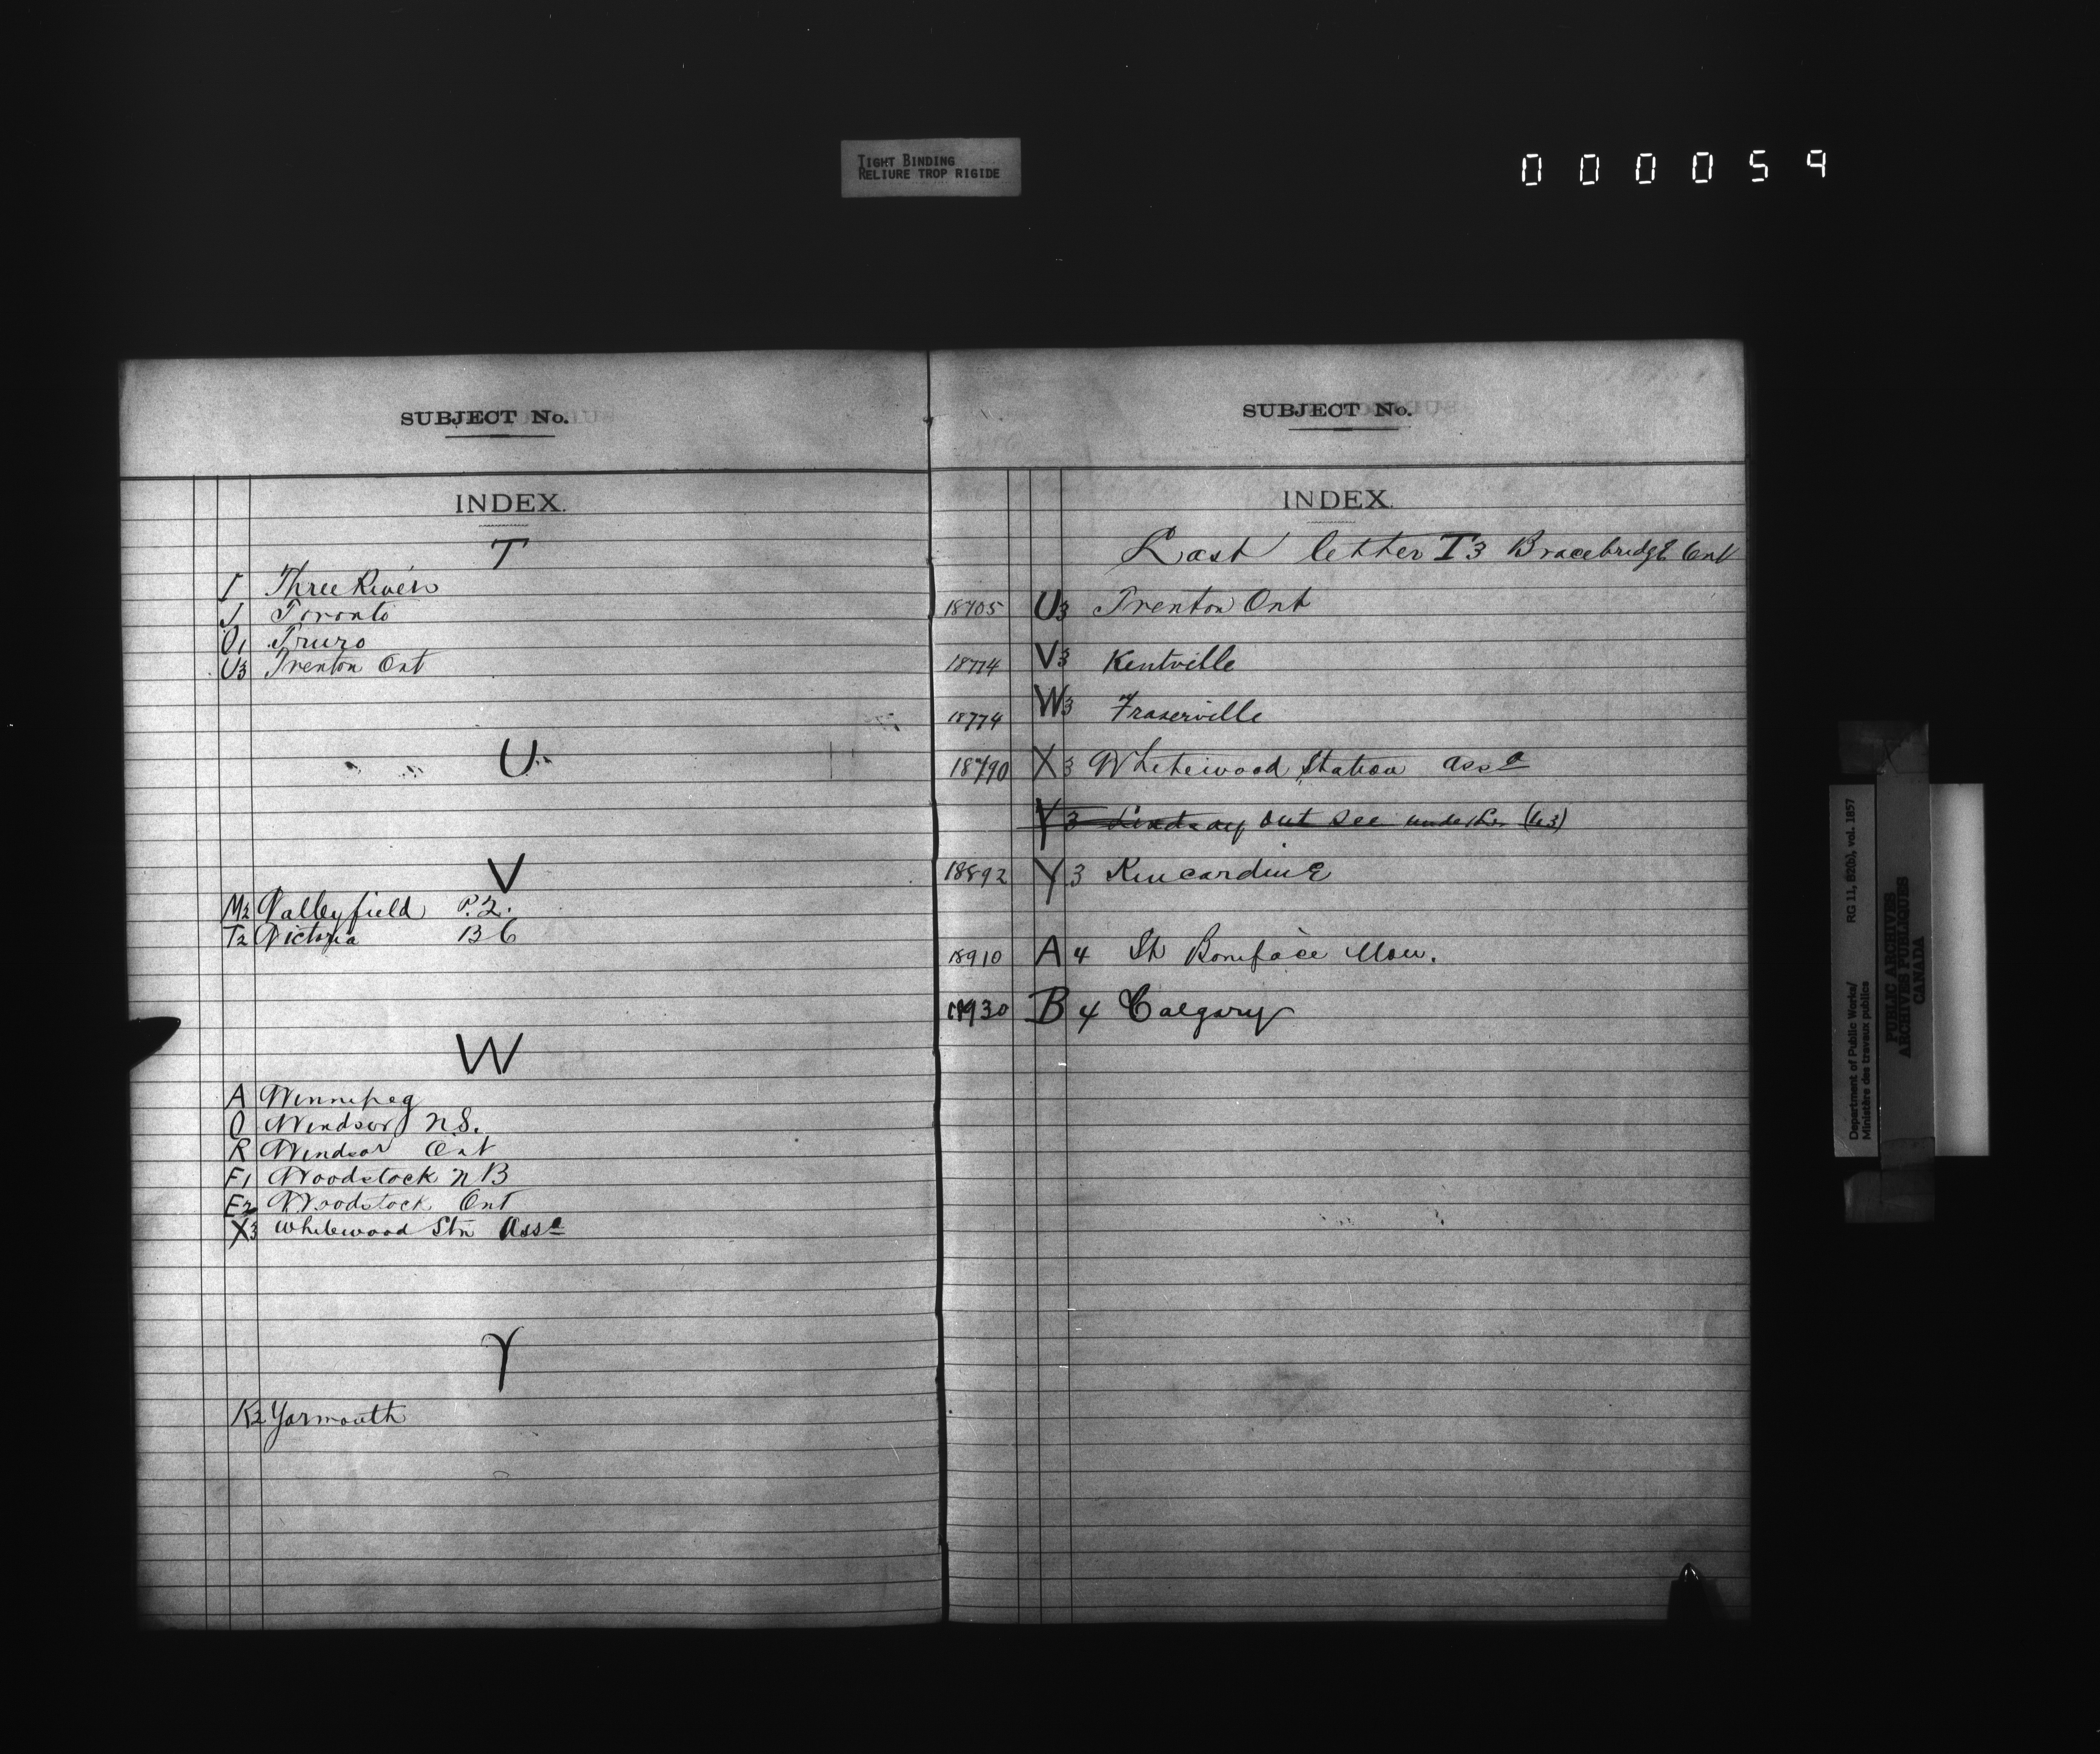 TIGHT BINDING
RELIURE TROP RIGIDE
000059
SUBJECT No.
INDEX.
T
I Three Rivers
J Toronto
O1 Truro
U3 Trenton Ont
U
V
M2 Valleyfield P.Q.
T2 Victoria BC
W
A Winnipeg
Q Windsor NS.
R Windsor Ont
F1 Woodstock NB
E2 Woodstock Ont
X3 Whitewood Stn Assa
Y
K2 Yarmouth
SUBJECT No.
INDEX.
Last letter T3 Bracebridge Ont
18705 U3 Trenton Ont
18774 V3 Kentville
18774 W3 Fraserville
18790 X3 Whitewood Station Assa
Y3 Lindsay Ont See under
18892 Y3 Kincardine
18910 A4 St Boniface Man.
18930 B4 Calgary
Department of Public Works/ RG 11, B2(b), vol. 1857
Ministère des travaux publics
PUBLIC ARCHIVES
ARCHIVES PUBLIQUES
CANADA